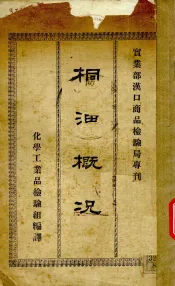 實業部漢口商品檢驗局專刊
桐油概況
化學工業品檢驗組編譯